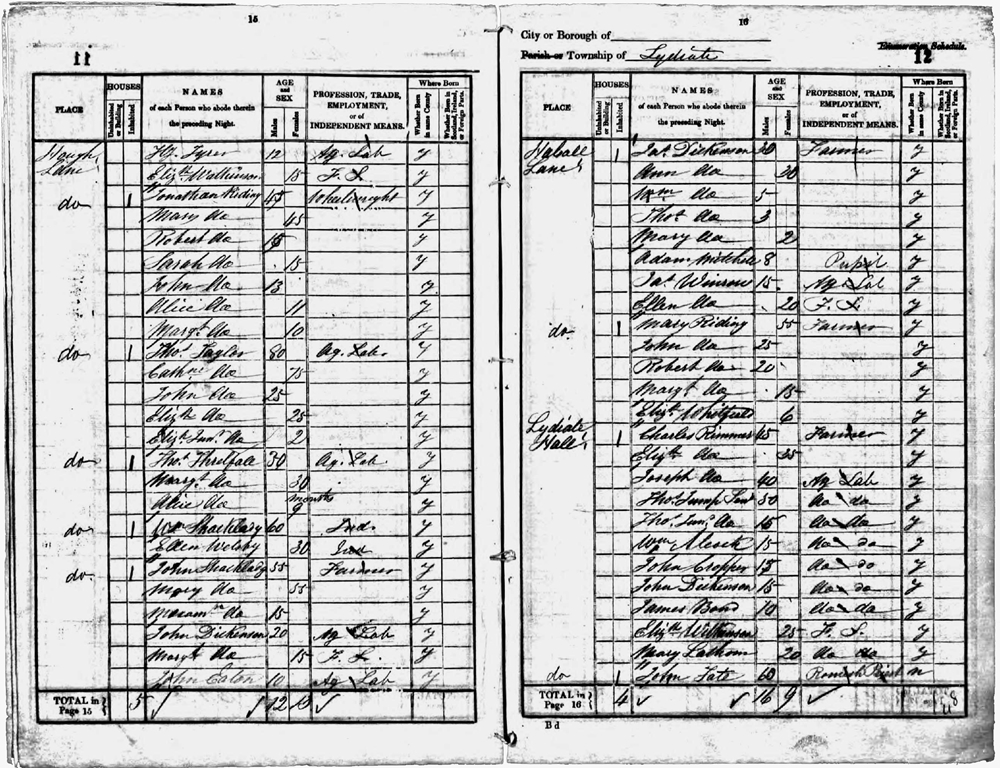 15
11
PLACE HOUSES NAMES AGE and SEX PROFESSION, TRADE, EMPLOYMENT, Where Born
Uninhabited or Building Inhabited of each Person who abode therein the preceding Night. Males Females or of INDEPENDENT MEANS. Whether Born in same County Whether Born in Scotland, Ireland, or Foreign Parts.
Hough Lane Hy. Tyrer 12 Ag. Lab y
Elizth. 15 F. S. y
do 1 Jonathan Riding 45 Wheelwright y
Mary do 45 y
Robert do 15 y
Sarah do 15 y
John do 13 y
Alice do 11 y
Margt. do 10 y
do 1 Thos. Taylor 80 Ag. Lab. y
Cathne do 75 y
John do 25 y
Elizth do 25 y
Elizth Junr. do 2 y
do 1 Thos. Threlfall 30 Ag. Lab y
Margt. do 30 y
Alice do 9 months y
do 1 Wm Shacklady 60 Ind. y
Ellen Welsby 30 Ind y
do 1 John Shacklady 55 Farmer y
Mary do 55 y
do 15 y
John Dickenson 20 Ag Lab y
Margt do 15 F. S. y
John 10 Ag Lab y
TOTAL in Page 15 } 5 12 13
16
City or Borough of
Parish or Township of Lydiate
Enumeration Schedule.
12
PLACE HOUSES NAMES AGE and SEX PROFESSION, TRADE, EMPLOYMENT, Where Born
Uninhabited or Building Inhabited of each Person who abode therein the preceding Night. Males Females or of INDEPENDENT MEANS. Whether Born in same County Whether Born in Scotland, Ireland, or Foreign Parts.
Lane 1 Jas. Dickenson 30 Farmer y
Ann do 30 y
Wm do 5 y
Thos do 3 y
Mary do 2 y
Adam Mitchell 8 Pupil y
Jas. Winrow 15 Ag Lab y
Ellen do 20 F. S. y
do 1 Mary Riding 55 Farmer y
John do 25 y
Robert do 20 y
Margt do 15 y
Elizth 6 y
Lydiate Hall 1 Charles Rimmer 45 Farmer y
Elizth do 35 y
Joseph do 40 Ag Lab y
Thos. Jump 50 do do y
Thos. Junr. do 15 do do y
Wm 15 do do y
John Cropper 15 do do y
John Dickenson 15 do do y
James Bond 10 do do y
Elizth Wilkinson 25 F. S. y
Mary Lathom 20 do do y
do 1 John 60 Romish Priest n
TOTAL in Page 16 } 4 16 9
B d